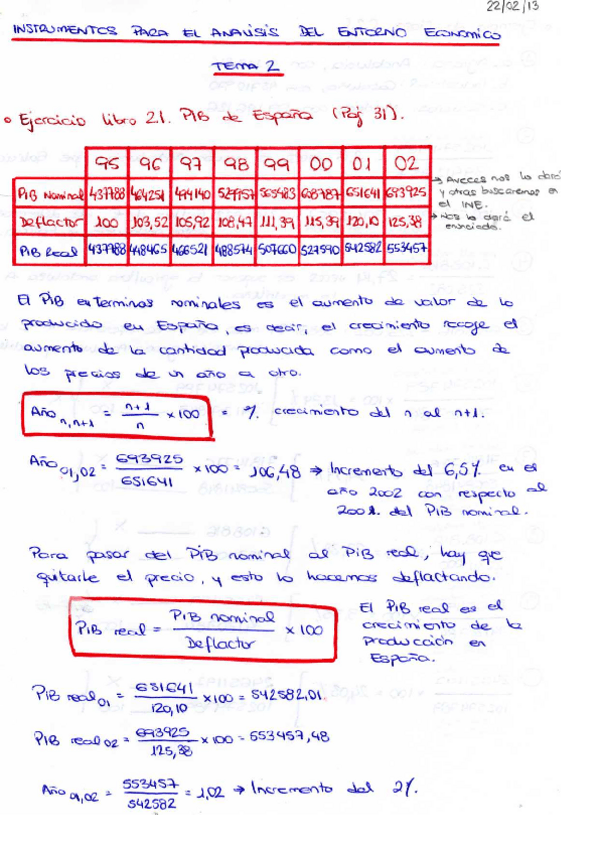 22/02/13
INSTRUMENTOS PARA EL ANALISIS DEL ENTORNO ECONOMICO
TEMA 2
• Ejercicio libro 2.1. PIB de España (Pág 31).
95 96 97 98 99 00 01 02
PIB Nominal 437788 464251 494140 529957 565483 608787 651641 693925
Deflactor 100 103,52 105,92 108,47 111,39 115,39 120,10 125,38
PIB Real 437788 448465 466521 488574 507660 527590 542582 553457
→ Aveces nos lo dará
y otras buscaremos en
el INE.
→ Nos lo dará el
enunciado.
El PIB en terminos nominales es el aumento de valor de lo
producido en España, es decir, el crecimiento recoge el
aumento de la cantidad producida como el aumento de
los precios de un año a otro.
Año n,n+1 = n+1 / n × 100 = % crecimiento del n al n+1.
Año 01,02 = 693925 / 651641 × 100 = 106,48 → Incremento del 6,5% en el
año 2002 con respecto al
2001. del PIB nominal.
Para pasar del PIB nominal al PIB real, hay que
quitarle el precio, y esto lo hacemos deflactando.
PIB real = PIB nominal / Deflactor × 100
El PIB real es el
crecimiento de la
producción en
España.
PIB real 01 = 651641 / 120,10 × 100 = 542582,01.
PIB real 02 = 693925 / 125,38 × 100 = 553457,48
Año 01,02 = 553457 / 542582 = 1,02 → Incremento del 2%.